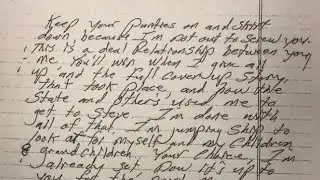 Keep your panties on and shirt
down, because I'm not out to screw you.
This is a deal Relationship between you
me. You'll win when I give all
up and the full Cover up Story
That took Place, and how the
State and Others used me to
get to Steve. I'm done with
all of that. I'm jumping ship to
look at for myself and my Children
& grandChildren. Your Choice. I'm
already got. Now it's up to